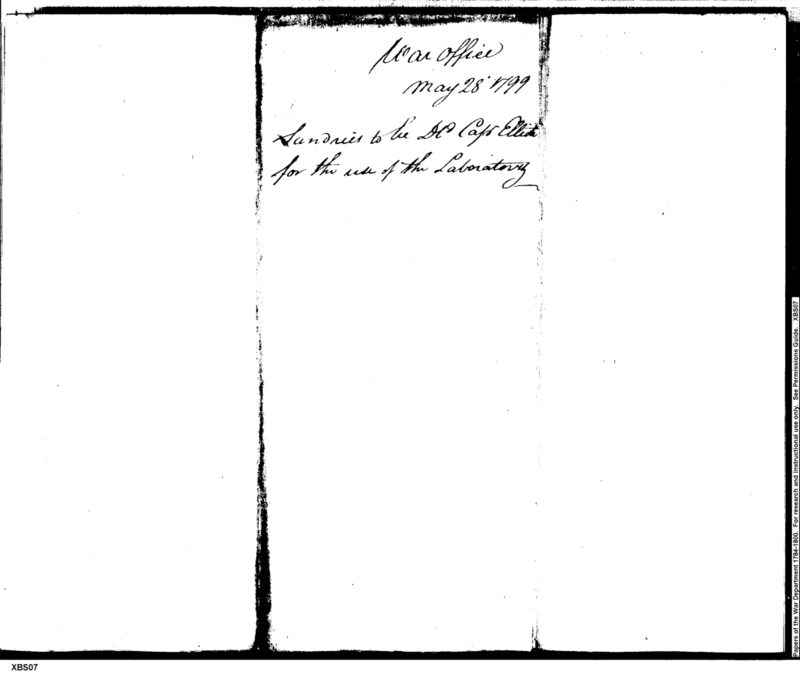 War Office
May 28 1799
Sundries to be DD Capt Elliot
for the use of the Laboratory
Papers of the War Department 1784-1800. For research and instructional use only. See Permissions Guide. XBS07
XBS07